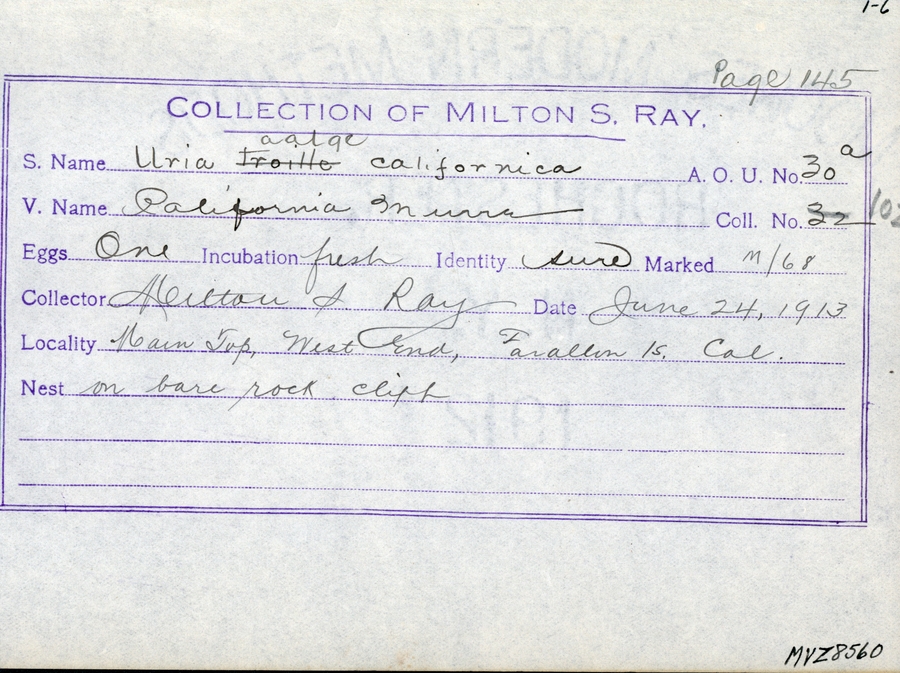 1-6
Page 145
COLLECTION OF MILTON S. RAY.
aalge
S. Name Uria troille californica A. O. U. No. 30a
V. Name California Murre Coll. No. 32 102
Eggs One Incubation fresh Identity sure Marked n/68
Collector Milton S Ray Date June 24, 1913
Locality Main Top, West End, Farallon Is. Cal.
Nest on bare rock cliff
MVZ8560